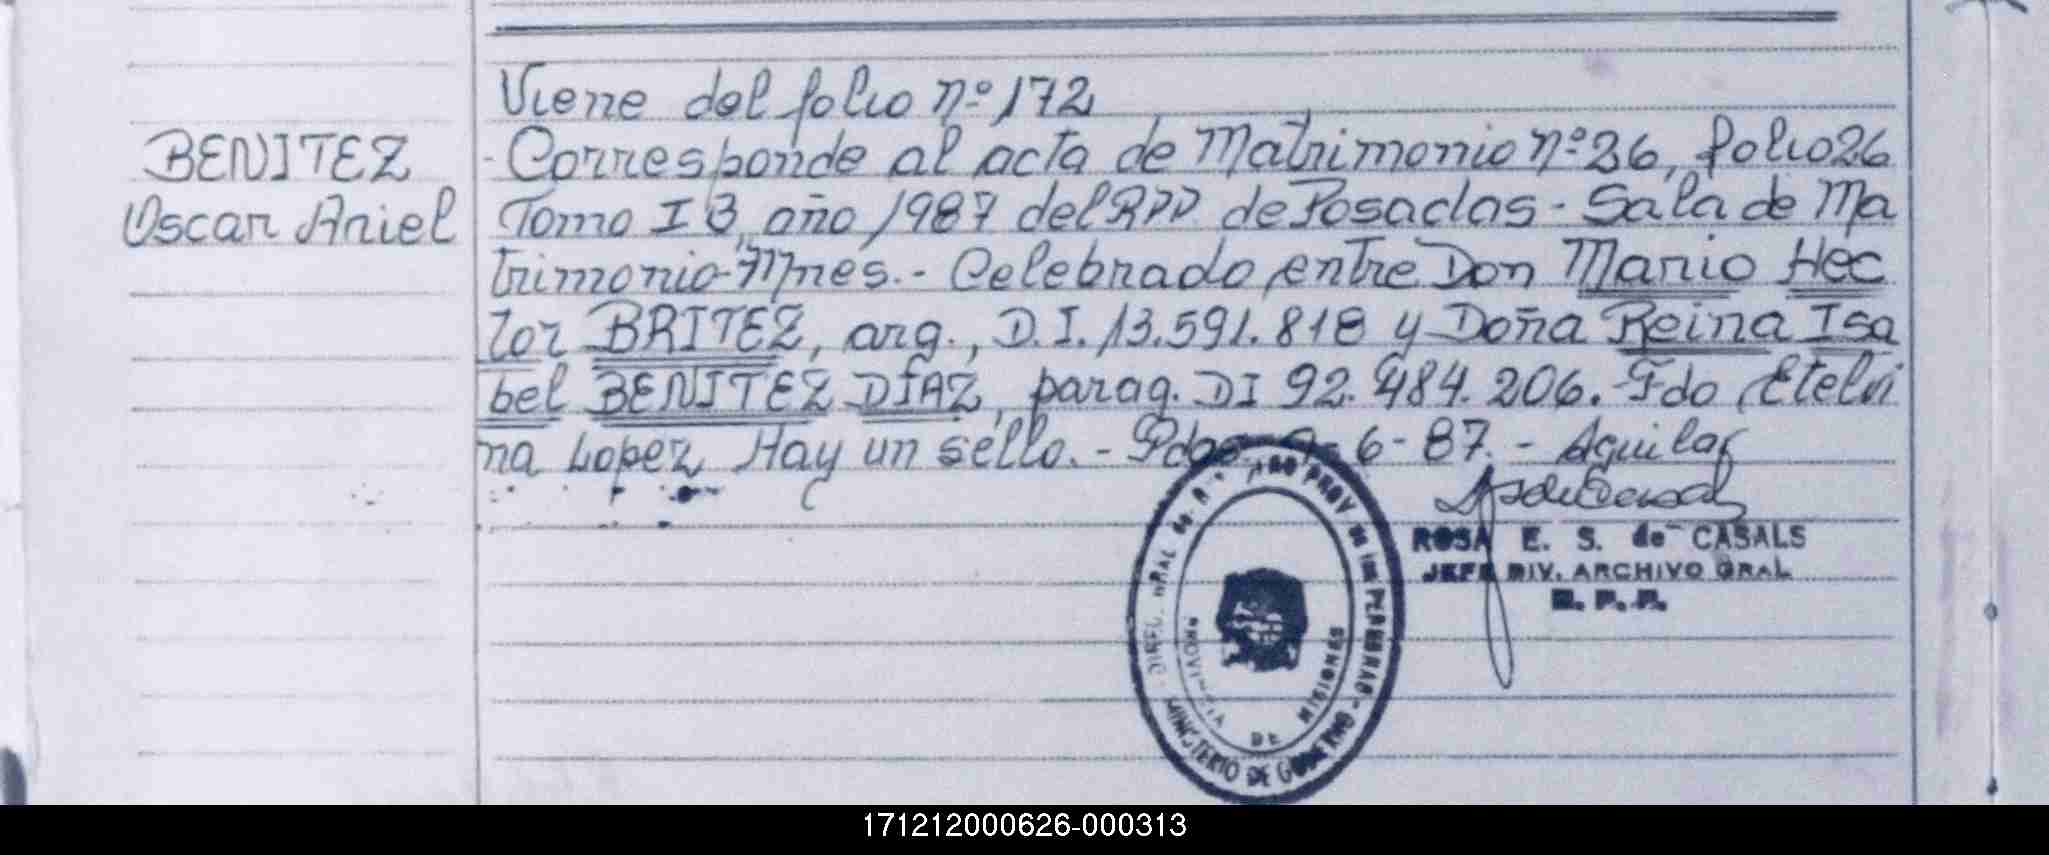 Viene del folio nº 172
BENITEZ
Oscar Ariel
- Corresponde al acta de Matrimonio nº 26, folio 26
Tomo I B, año 1987 del RPP de Posadas - Sala de Ma
trimonio - Mnes. - Celebrado entre Don Mario Hec
tor BRITEZ, arg., D.I. 13.591.818 y Doña Reina Isa
bel BENITEZ DÍAZ, parag. DI 92.484.206. Fdo Etelvi
na Lopez Hay un sello. - Pdas 9-6-87. - Aguilar
ROSA E. S. de CASALS
JEFE DIV. ARCHIVO GRAL
R. P. P.
PROV. de las PERSONAS
MINISTERIO DE GOBIERNO
PROVINCIA DE MISIONES
171212000626-000313